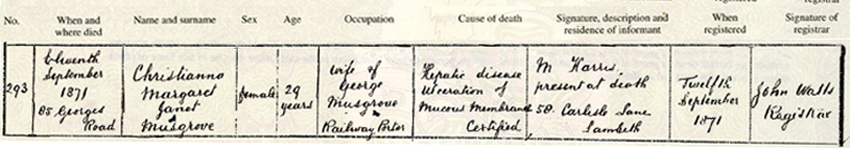 No.
When and
where died
Name and surname
Sex
Age
Occupation
Cause of death
Signature, description and
residence of informant
When
registered
Signature of
registrar
293
Eleventh
September
1871
85 Georges
Road
Christianna
Margaret
Janet
Musgrove
female
29
years
Wife of
George
Musgrove
Railway Porter
Hepatic disease
Ulceration of
Mucous Membrane
Certified
M Harris
present at death
50. Carlisle Lane
Lambeth
Twelfth
September
1871
John Watts
Registrar